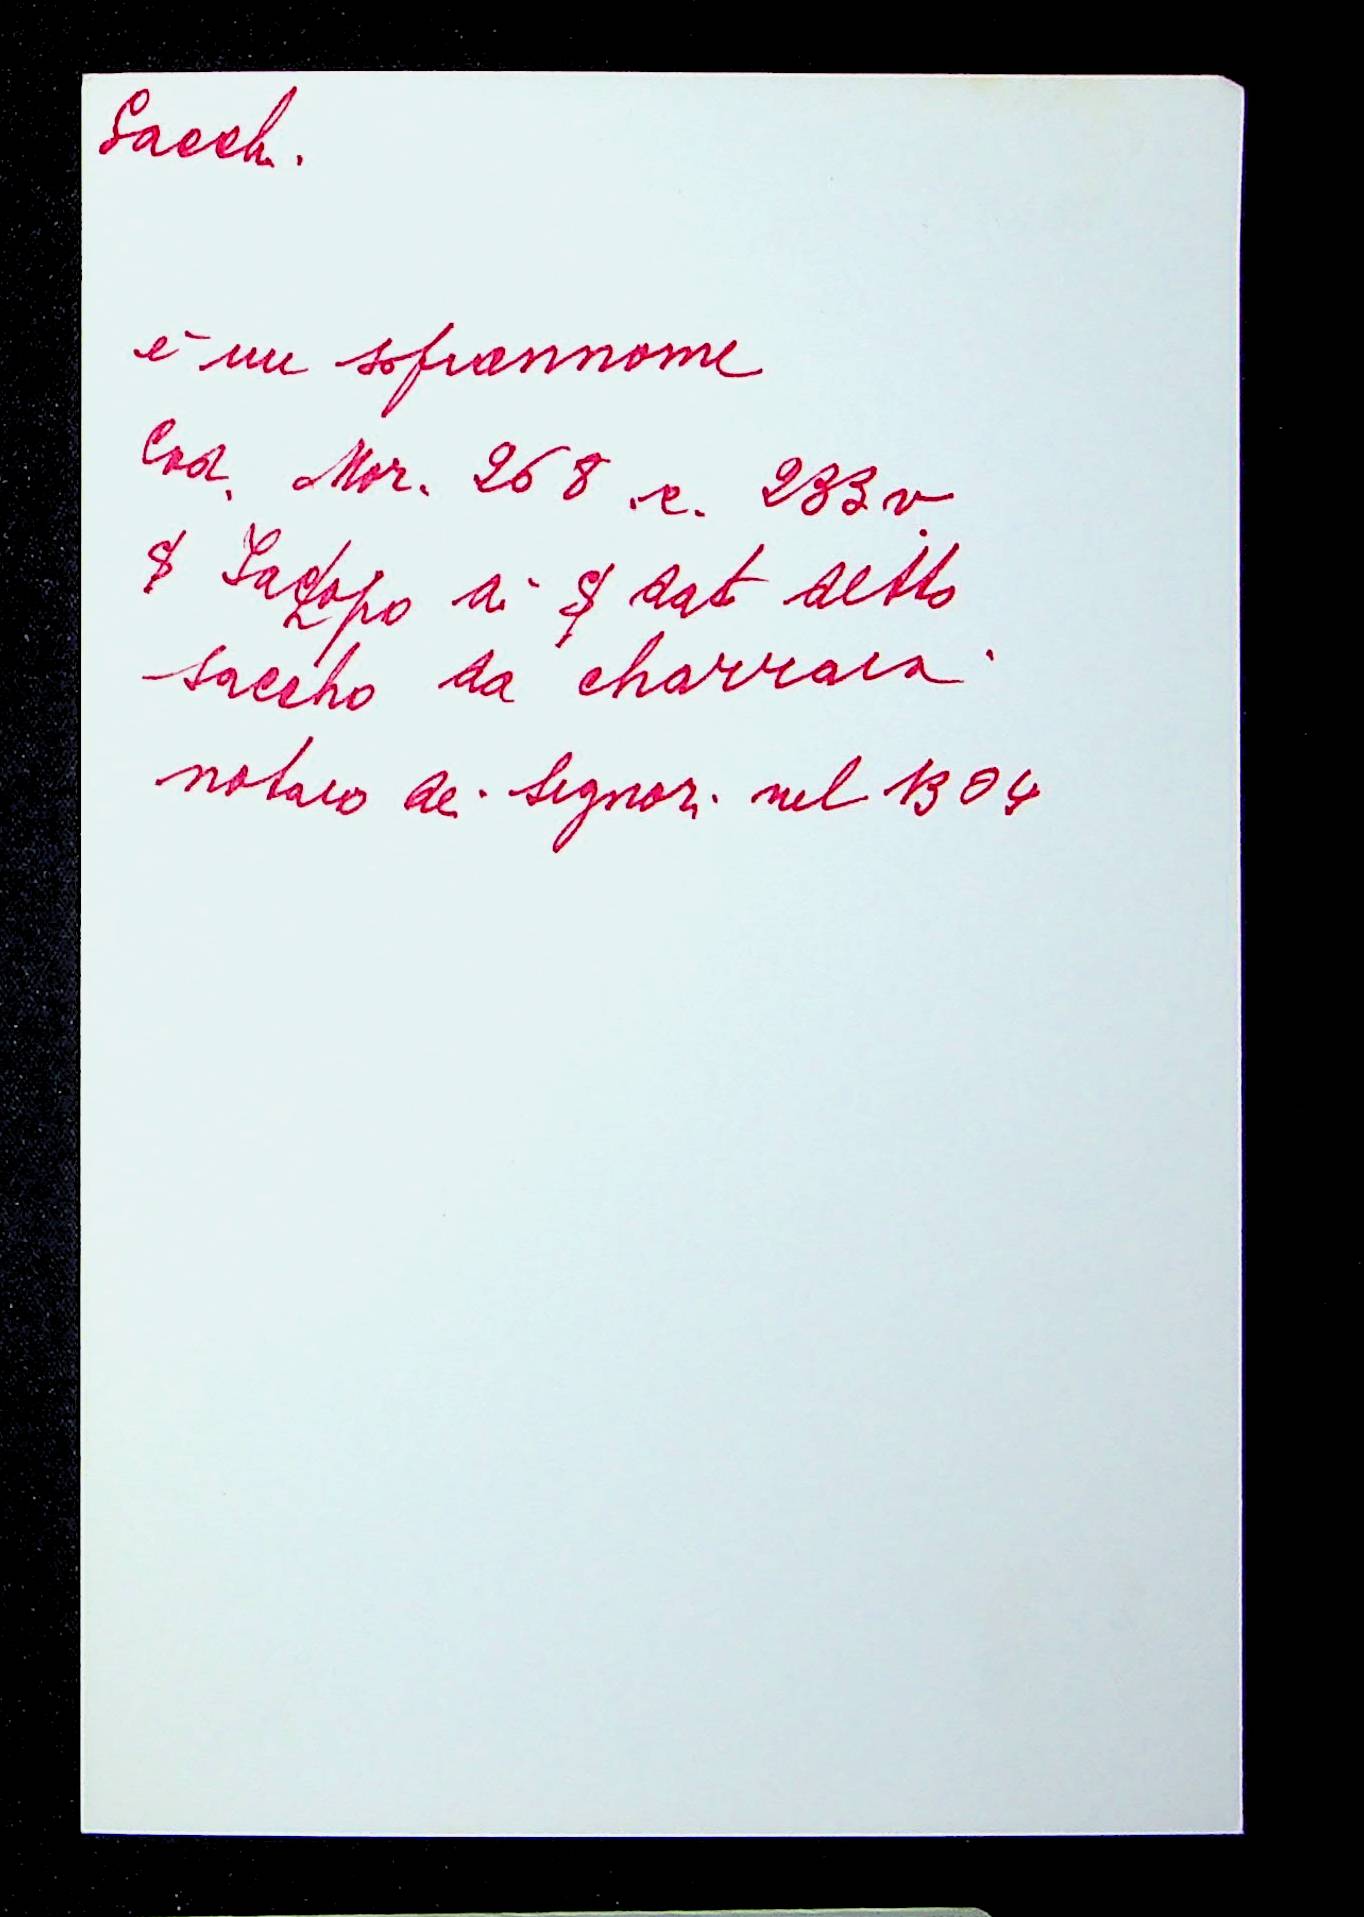 Sacch.
è un sofrannome
Cod. Mor. 268 c. 233 v.
S Jacopo di S dat detto
saccho da charraia
notaio dei Signori nel 1304